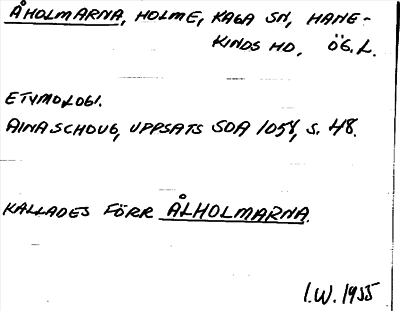 ÅHOLMARNA, HOLME, KAGA SN, HANE-
KINDS HD, ÖG.L.
ETYMOLOGI.
AINA SCHOUG, UPPSATS SOA 1058, S. 48.
KALLADES FÖRR ÅLHOLMARNA.
I.W. 1955